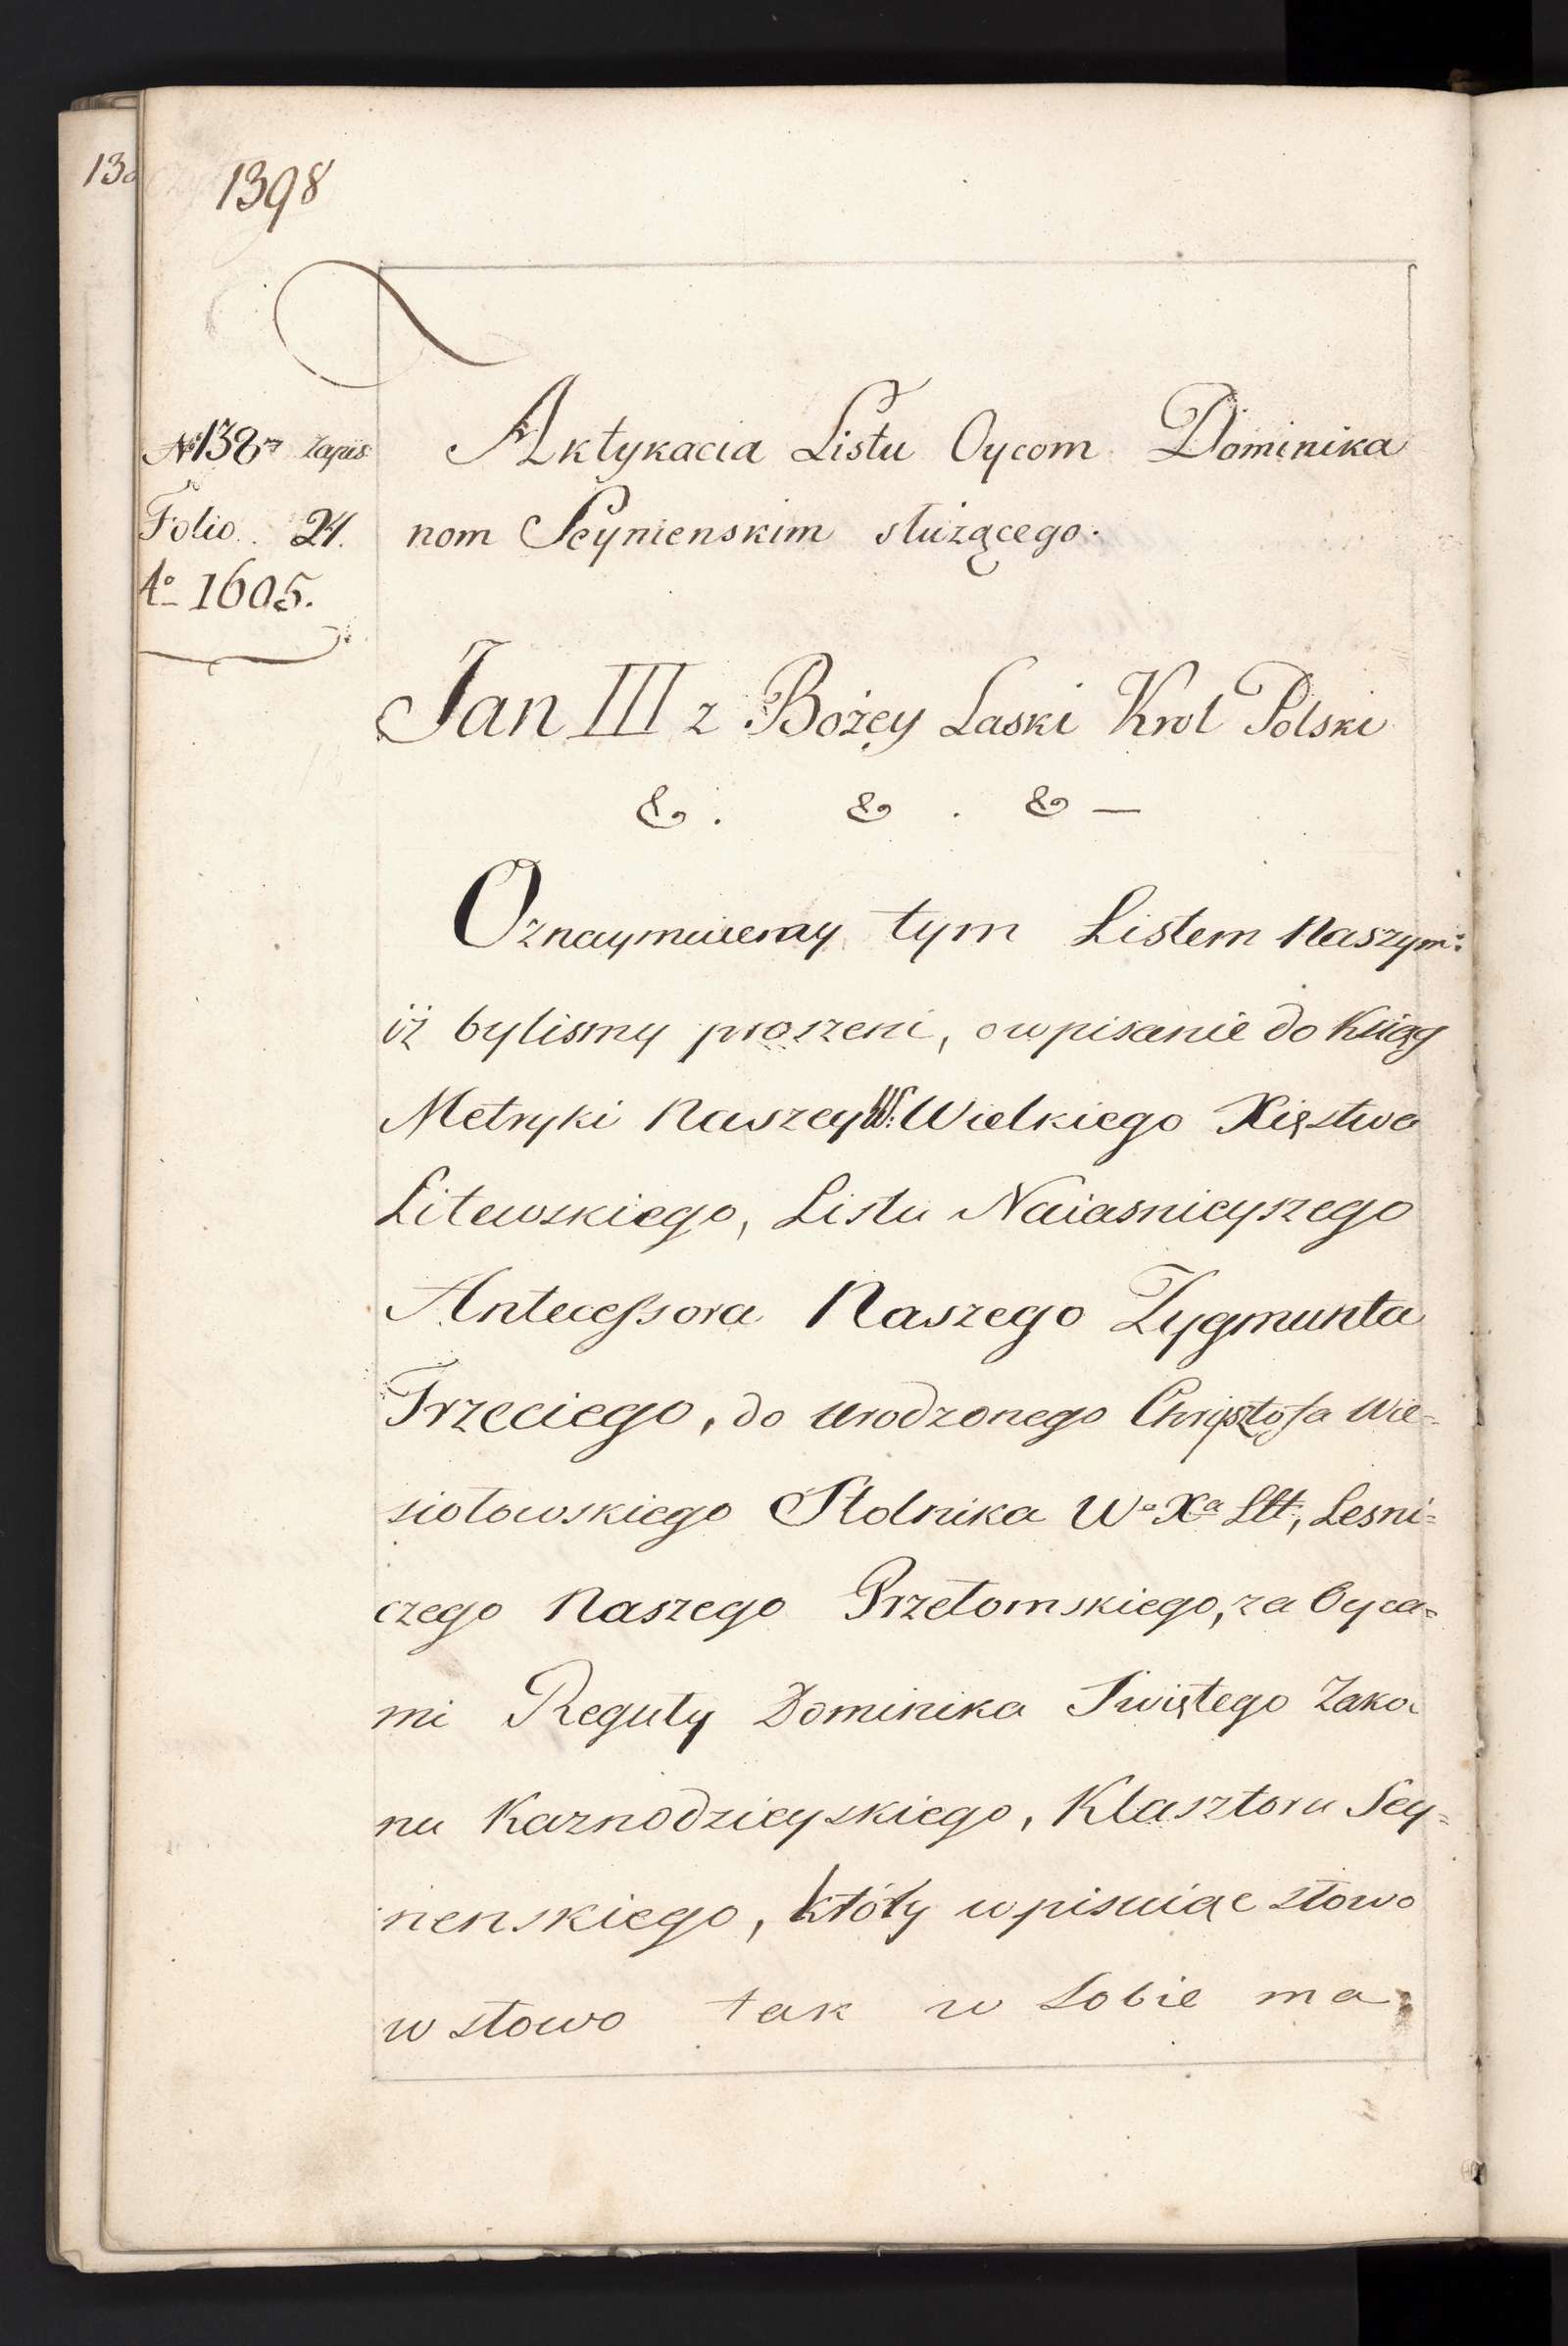 1398
№ 138 Zapis
Folio. 24.
Aº 1605.
Aktykacia Listu Oycom Dominika
nom Seynienskim służącego.
Jan III z Bożey Laski Krol Polski
&. & . & —
Oznaymuiemy tym Listem Naszym:
iż bylismy proszeni, o wpisanie do Xsiąg
Metryki Naszey W: Wielkiego Xięstwa
Litewskiego, Listu Naiasnieyszego
Antecessora Naszego Zygmunta
Trzeciego, do Urodzonego Chrysztofa Wie-
siołowskiego Stolnika Wº Xª Litt, Lesni=
czego Naszego Przełomskiego, za Oyca=
mi Reguły Dominika Swiętego Zako-
nu Kaznodzieyskiego, Klasztoru Sey=
nenskiego, który wpisuiąc słowo
w słowo tak w Sobie ma